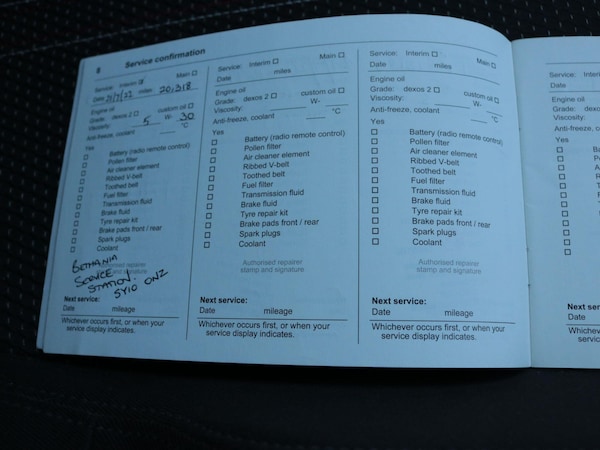 8 Service confirmation
Service: Interim Main
Date 21/7/22 miles 20,318
Engine oil
Grade: dexos 2 custom oil
Viscosity: 5 W- 30
Anti-freeze, coolant °C
Yes
Battery (radio remote control)
Pollen filter
Air cleaner element
Ribbed V-belt
Toothed belt
Fuel filter
Transmission fluid
Brake fluid
Tyre repair kit
Brake pads front / rear
Spark plugs
Coolant
Authorised repairer
stamp and signature
BETHANIA
SERVICE
STATION.
SY10 0NZ
Next service:
Date mileage
Whichever occurs first, or when your
service display indicates.
Service: Interim Main
Date miles
Engine oil
Grade: dexos 2 custom oil
Viscosity: W-
Anti-freeze, coolant °C
Yes
Battery (radio remote control)
Pollen filter
Air cleaner element
Ribbed V-belt
Toothed belt
Fuel filter
Transmission fluid
Brake fluid
Tyre repair kit
Brake pads front / rear
Spark plugs
Coolant
Authorised repairer
stamp and signature
Next service:
Date mileage
Whichever occurs first, or when your
service display indicates.
Service: Interim Main
Date miles
Engine oil
Grade: dexos 2 custom oil
Viscosity: W-
Anti-freeze, coolant °C
Yes
Battery (radio remote control)
Pollen filter
Air cleaner element
Ribbed V-belt
Toothed belt
Fuel filter
Transmission fluid
Brake fluid
Tyre repair kit
Brake pads front / rear
Spark plugs
Coolant
Authorised repairer
stamp and signature
Next service:
Date mileage
Whichever occurs first, or when your
service display indicates.
Service: Inter
Date
Engine oil
Grade: dexos
Viscosity:
Anti-freeze, c
Yes
Next service:
Date
Whichever occ
service disp